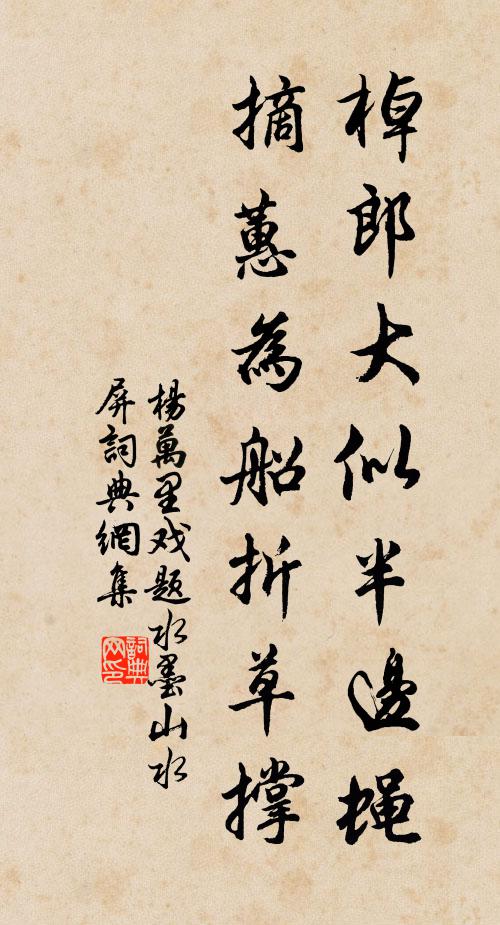 棹郎大似半邊蝇
摘蕙為船折草撑
楊萬里戏题水墨山水
屏詞典網集
詞典网印